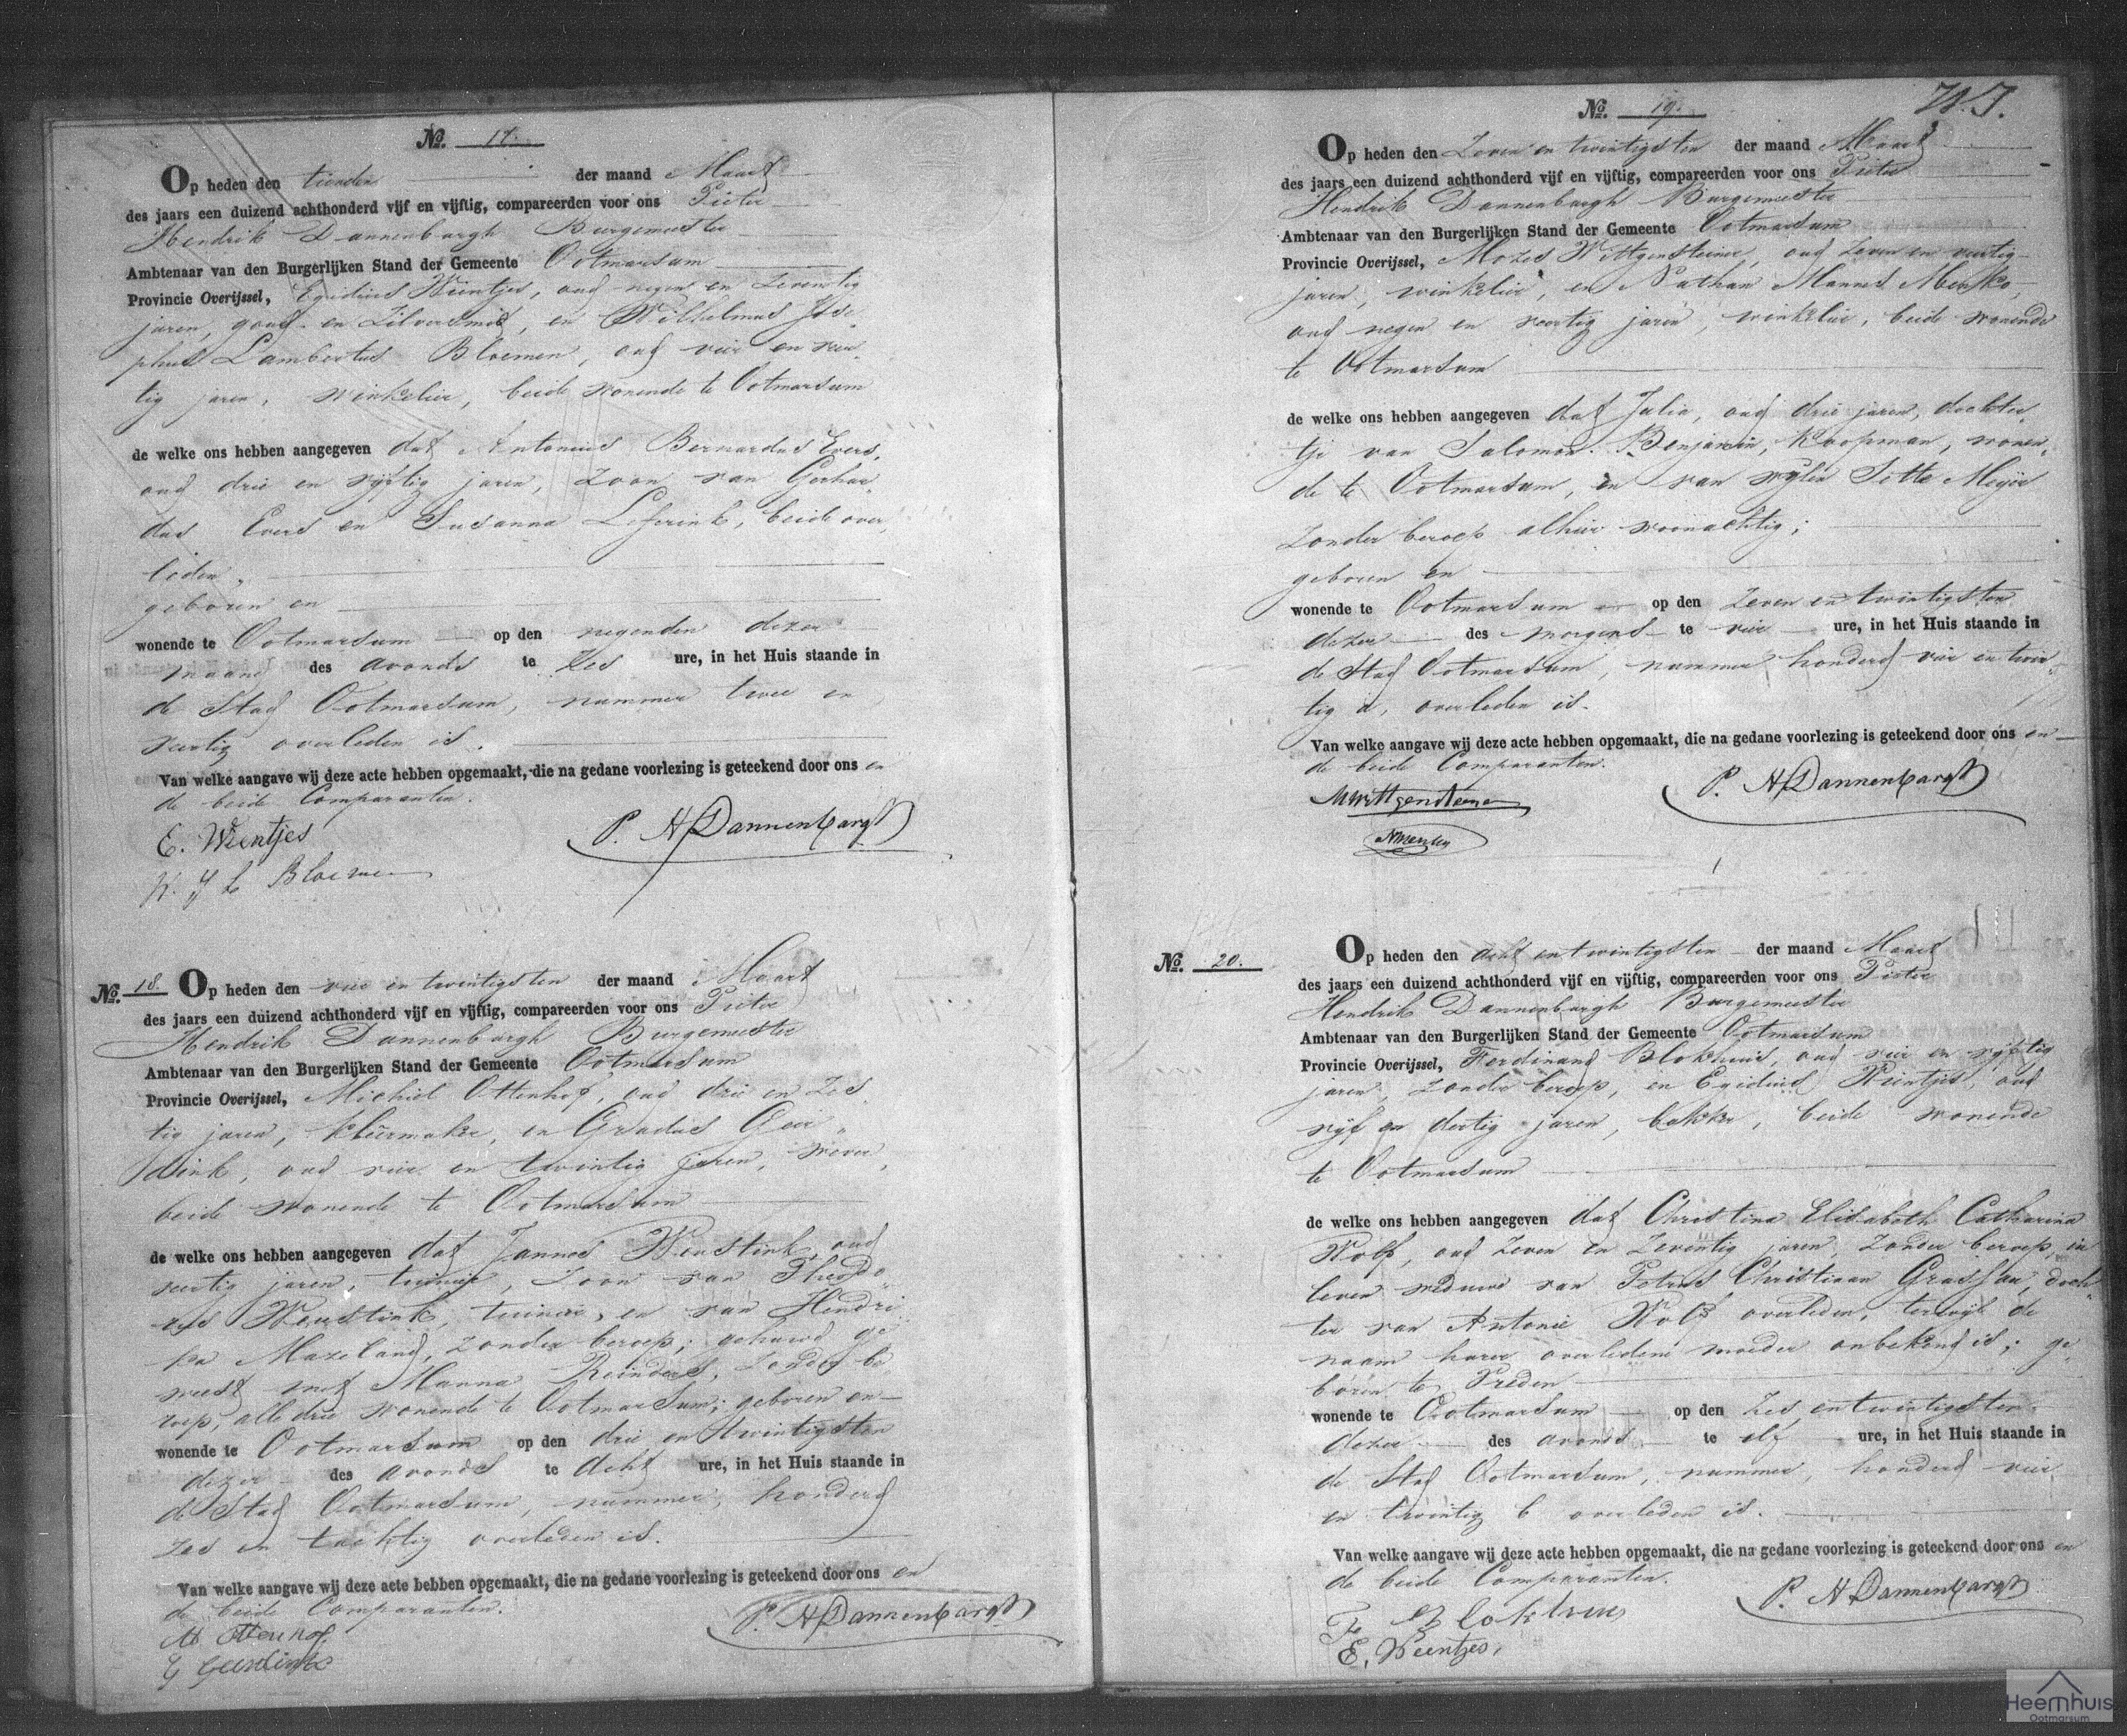 No. 17.
Op heden den tienden der maand Maart
des jaars een duizend achthonderd vijf en vijftig, compareerden voor ons Pieter
Hendrik Dannenbargh Burgemeester
Ambtenaar van den Burgerlijken Stand der Gemeente Ootmarsum
Provincie Overijssel, Egidius Weintjes, oud negen en zeventig
jaren, goud- en zilversmid, en Wilhelmus Jose-
phus Lambertus Bloemen, oud vier en veer-
tig jaren, winkelier, beide wonende te Ootmarsum
de welke ons hebben aangegeven dat Antonius Bernardus Evers,
oud drie en vijftig jaren, zoon van Gerhar-
dus Evers en Susanna Leferink, beide over-
leden,
geboren en
wonende te Ootmarsum op den negenden dezer
maand des avonds te zes ure, in het Huis staande in
de Stad Ootmarsum, nummer twee en
veertig overleden is.
Van welke aangave wij deze acte hebben opgemaakt, die na gedane voorlezing is geteekend door ons en
de beide Comparanten.
E. Weintjes
P. H Dannenbargh
W. J L Bloemen
No. 18.
Op heden den vier en twintigsten der maand Maart
des jaars een duizend achthonderd vijf en vijftig, compareerden voor ons Pieter
Hendrik Dannenbargh Burgemeester
Ambtenaar van den Burgerlijken Stand der Gemeente Ootmarsum
Provincie Overijssel, Michiel Ottenhof, oud drie en zes-
tig jaren, kleermaker, en Gradus Geer-
dink, oud vier en twintig jaren, wever,
beide wonende te Ootmarsum
de welke ons hebben aangegeven dat Jannes Weustink, oud
veertig jaren, tuinier, zoon van Theodo-
rus Weustink, tuinier, en van Hendri
ka Mazeland, zonder beroep; gehuwd ge
weest met Manna Reinders, zonder be-
roep, alle drie wonende te Ootmarsum; geboren en
wonende te Ootmarsum op den drie en twintigsten
dezer des avonds te acht ure, in het Huis staande in
de Stad Ootmarsum, nummer honderd
zes en tachtig overleden is.
Van welke aangave wij deze acte hebben opgemaakt, die na gedane voorlezing is geteekend door ons en
de beide Comparanten.
M Ottenhof
P. H Dannenbargh
G Geerdink
No. 19.
Op heden den zeven en twintigsten der maand Maart
des jaars een duizend achthonderd vijf en vijftig, compareerden voor ons Pieter
Hendrik Dannenbargh Burgemeester
Ambtenaar van den Burgerlijken Stand der Gemeente Ootmarsum
Provincie Overijssel, Mozes Wittgensteiner, oud zeven en veertig
jaren, winkelier, en Nathan Mannes Menko,
oud negen en veertig jaren, winkelier, beide wonende
te Ootmarsum
de welke ons hebben aangegeven dat Julia, oud drie jaren, dochter-
tje van Salomon Benjamin, Koopman, wonen-
de te Ootmarsum, en van wijlen Sette Meijer
zonder beroep alhier woonachtig;
geboren en
wonende te Ootmarsum op den zeven en twintigsten
dezer des morgens te vier ure, in het Huis staande in
de Stad Ootmarsum, nummer honderd vier en twin-
tig a, overleden is.
Van welke aangave wij deze acte hebben opgemaakt, die na gedane voorlezing is geteekend door ons en
de beide Comparanten.
MWittgensteiner
P. H Dannenbargh
NMMenko
No. 20.
Op heden den acht en twintigsten der maand Maart
des jaars een duizend achthonderd vijf en vijftig, compareerden voor ons Pieter
Hendrik Dannenbargh Burgemeester
Ambtenaar van den Burgerlijken Stand der Gemeente Ootmarsum
Provincie Overijssel, Ferdinand Blokhuis, oud vier en vijftig
jaren, zonder beroep, en Egidius Weintjes, oud
vijf en dertig jaren, bakker, beide wonende
te Ootmarsum
de welke ons hebben aangegeven dat Christina Elisabeth Catharina
Wolf, oud zeven en zeventig jaren, zonder beroep, in
leven weduwe van Petrus Christiaan Grassau, doch-
ter van Antonie Wolf overleden, terwijl de
naam harer overledene moeder onbekend is; ge
boren te Vreden
wonende te Ootmarsum op den zes en twintigsten
dezer des avonds te elf ure, in het Huis staande in
de Stad Ootmarsum, nummer, honderd vier
en twintig b overleden is.
Van welke aangave wij deze acte hebben opgemaakt, die na gedane voorlezing is geteekend door ons en
de beide Comparanten.
P. H Dannenbargh
Fe Blokhuis
E. Weentjes,
Heemhuis
Ootmarsum